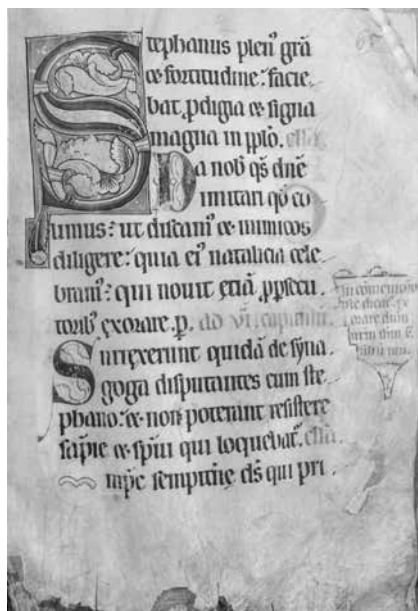 Stephanus plen' grā
& fortitudine: facie
bat ꝓdigia & signa
magna in pp̄lo.
Da nob' qs dn̄e
imitari qd' co
limus: ut discam' & inimicos
diligere: quia ei' natalicia cele
bram': qui nouit etiā ꝓ persecu
torib' exorare. p. ad vi. capitulū.
Surrexerunt quidā de syna
goga disputantes cum ste
phano: & non poterant resistere
sapīe & spūi qui loquebat'.
mp̄e sempitne ds̄ qui pri